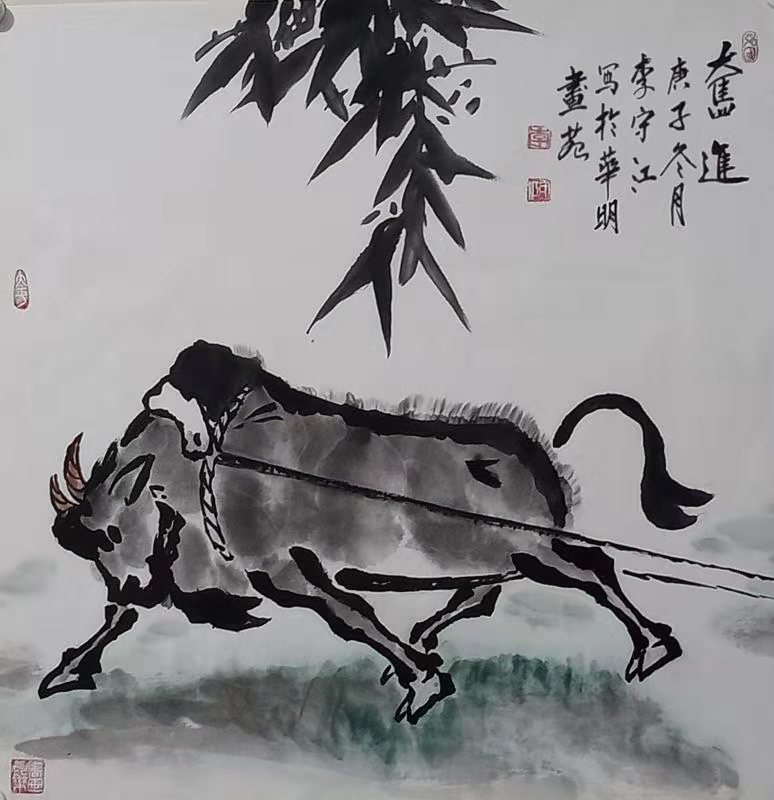 奮進
庚子冬月
李守江
写於華明
畫苑